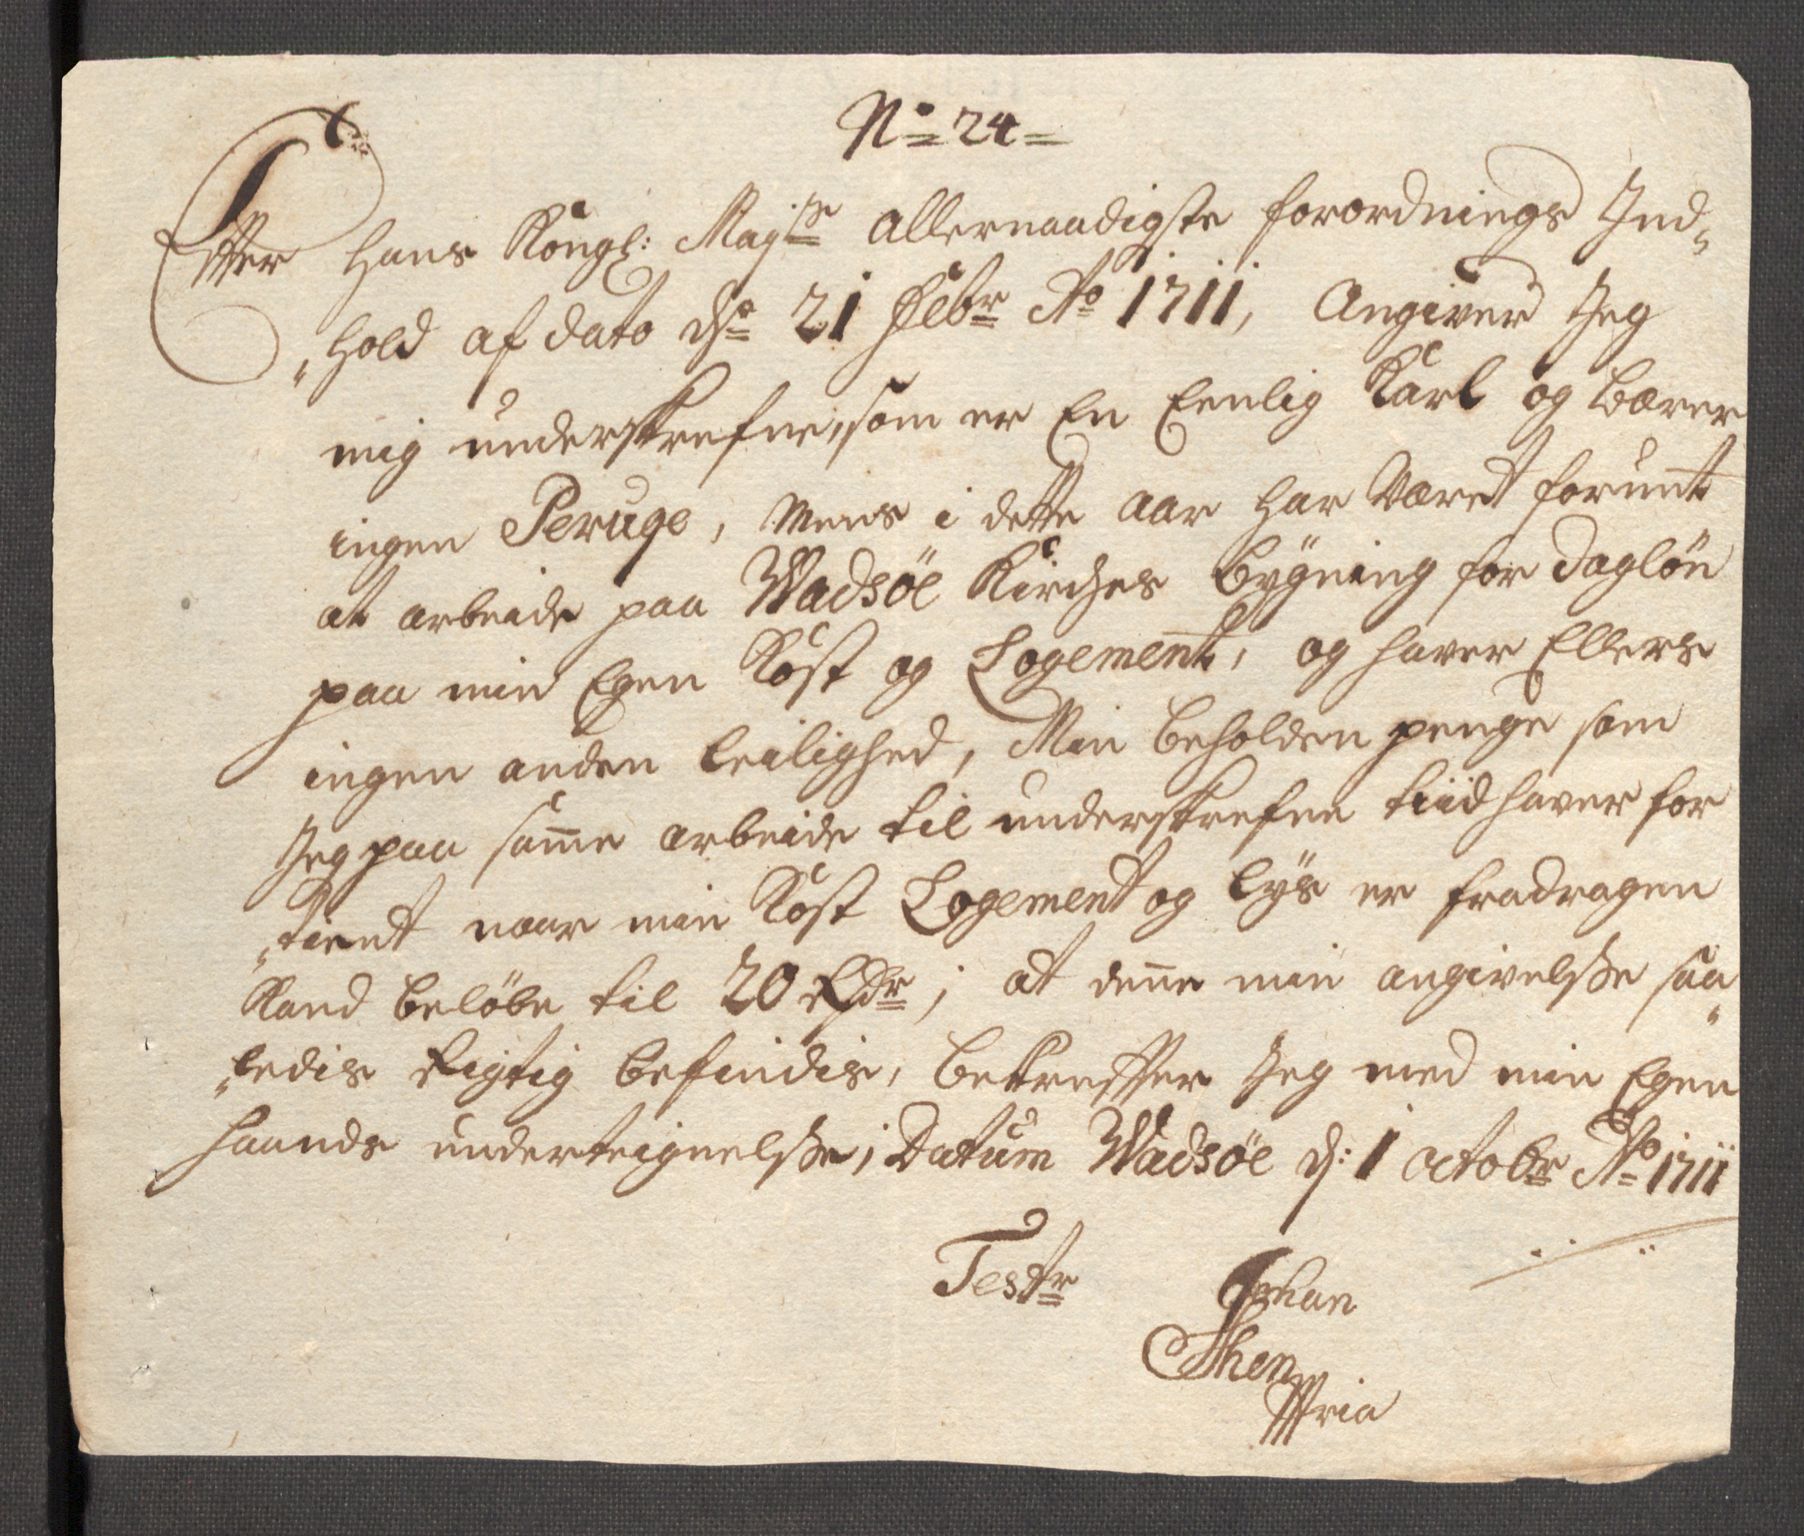 No 24
Efter Hans Kongl: Majts Allernaadigste forordnings Ind-
hold af dato ds 21 Febr Ao 1711, Angiver Jeg
mig underskrefne, som er En Eenlig Karl og Bærer
ingen Peruge, Mens i dette Aar har Været forunt
at arbeide paa Wadsöe Kirches Bygning for dagløn
paa min Egen Kost og Logement, og haver Ellers
ingen anden leilighed, Min beholden penge som
Jeg paa same arbeide til underskrefne tiid haver for
tient naar min Kost Logement og lys er fradragen
Kand beløbe til 20 Rdr; at dene min angivelsse saa
ledis Rigtig befindis, bekreffter Jeg med min Egen
haands underteignelsse; Datum Wadsöe d: 1 octobr Ao 1711
Testr Johan
Then
Mpria